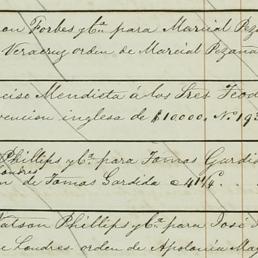 on Forbes y Cª para Marcial Peza
Veracruz orden de Marcial Pezana
ciso Mendista á los Sres Teod
vencion inglesa de $10000. Nº 193
Phillips y Cª para Tomas Gardid
ondres
n de Tomas Gardida
Watson Phillips y Cª para José
e Londres orden de Apolonia Ma